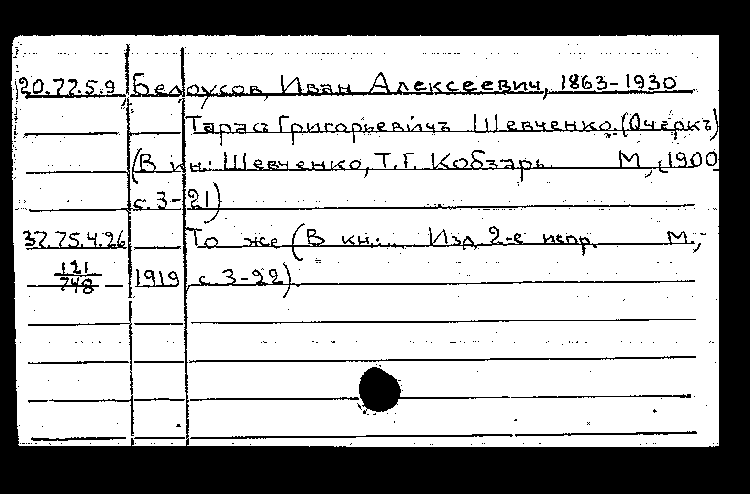 20.72.5.9 Белоусов, Иван Алексеевич, 1863-1930
Тарасъ Григорьевичъ Шевченко. (Очеркъ)
(В кн.: Шевченко, Т.Г. Кобзарь. М., [1900
с. 3-21)
37.75.4.26 То же (В кн.:... Изд. 2-е испр. М.,
121
748
1919, с. 3-22).